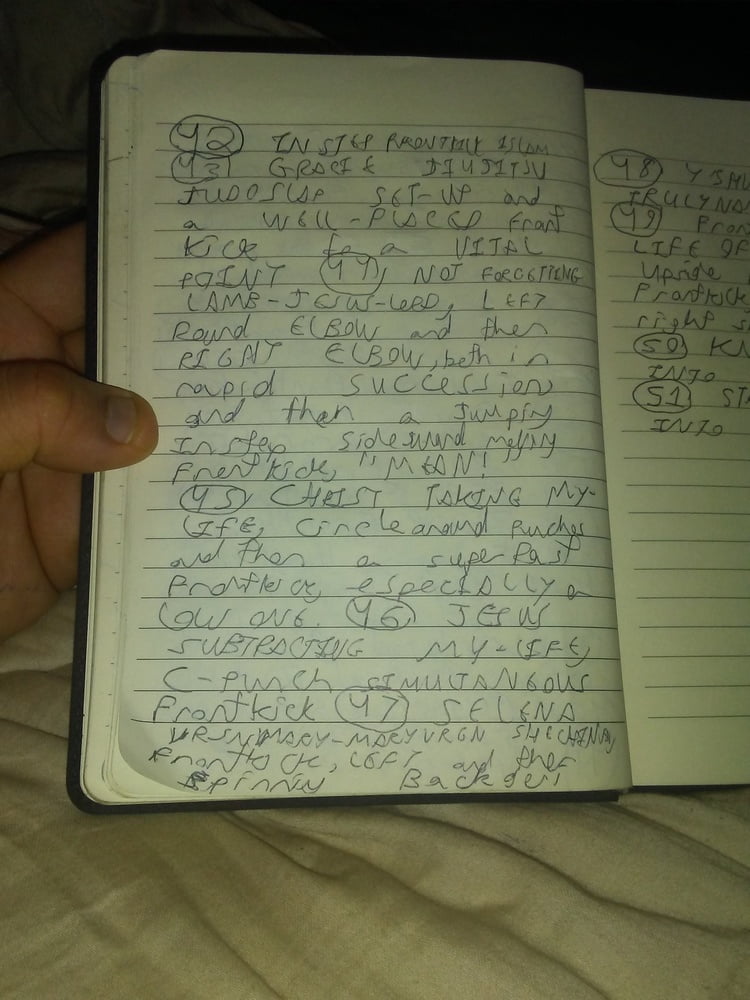 42 INSTEP FRONTKICK ISLAM
43 GRACIE JIUJITSU
JUDOSLAP SET-UP and
a WELL-PLACED front
kick for a VITAL
POINT 44, NOT FORGETTING
LAMB-JESUS-LORD, LEFT
Round ELBOW and then
RIGHT ELBOW, both in
rapid SUCCESSION
and then a Jumping
Instep sideward
Frontkick, "MEAN!"
45 CHRIST TAKING MY-
LIFE, Circle around Punches
and then a super fast
Frontkick, especially a
LOW ONE. 46 JESUS
SUBTRACTING MY-LIFE,
C-Punch SIMULTANEOUS
Frontkick 47 SELENA
Frontkick, LEFT and then
Spinny Back
48
TRULY
49 Fron
LIFE OF
Frontkick
right
50 KN
INTO
51 STA
INTO